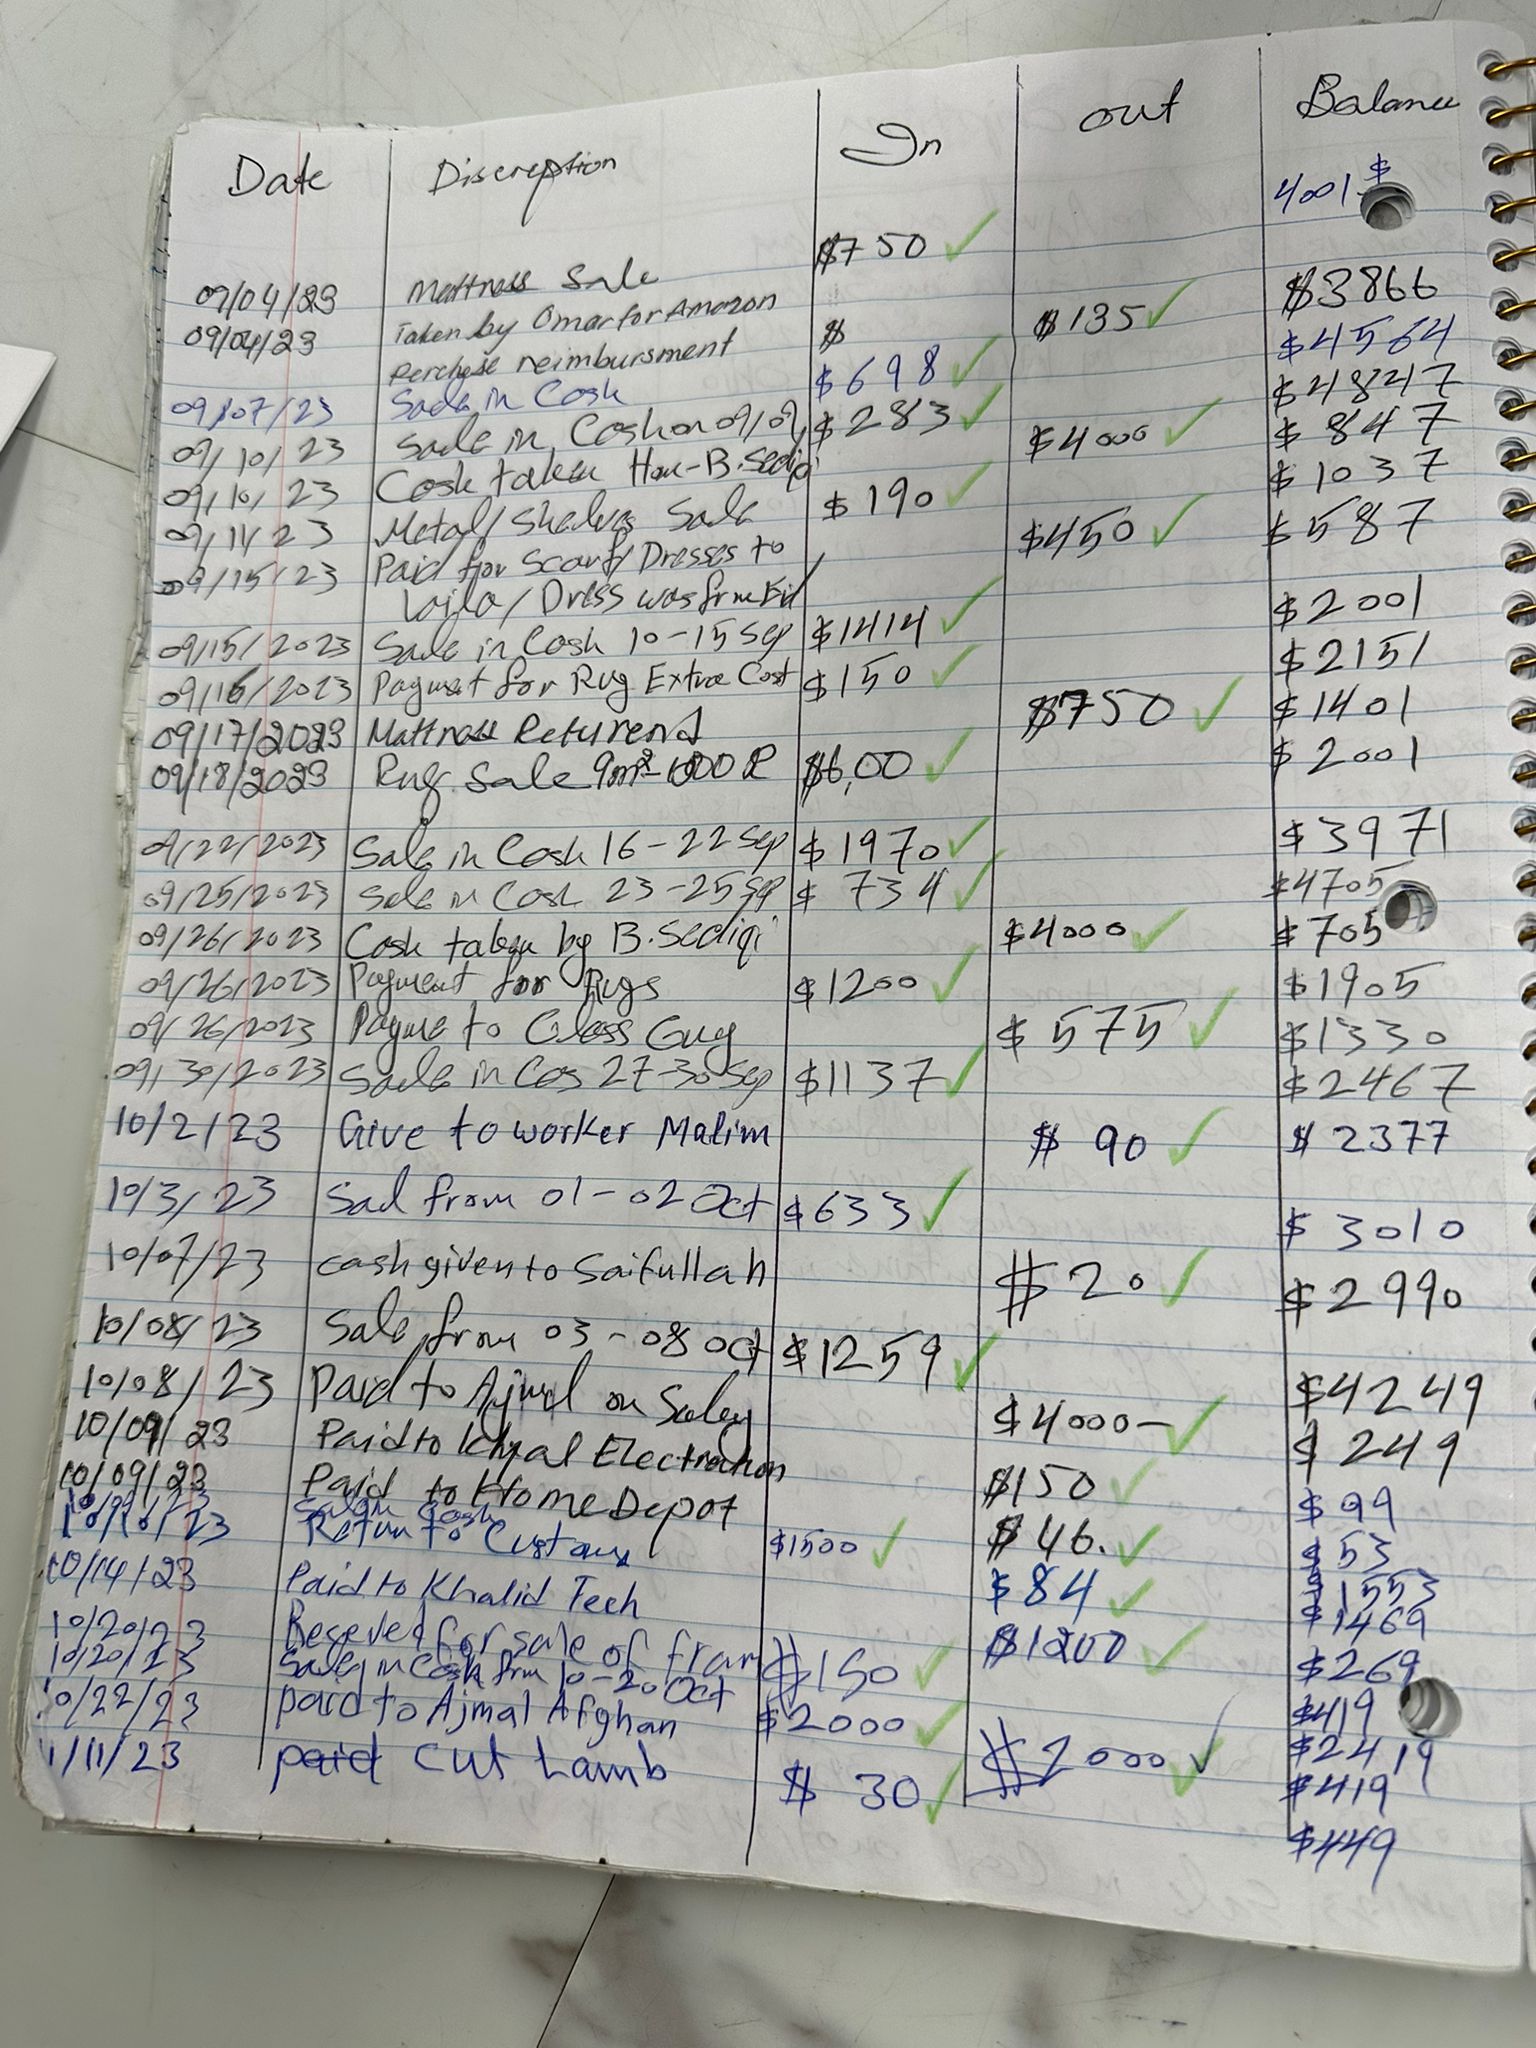 Date Discreption In out Balance
4001 $
09/04/23 Mattness Sale $750
09/04/23 Taken by Omar for Amazon $ $135 $3866
Perchese reimbursment
09/07/23 Sale in Cash $698 $4564
09/10/23 Sale in Cash on 09/09 $283 $4847
09/10/23 Cash taken B.Sediqi $4000 $847
09/11/23 Metal/Shelves Sale $190 $1037
09/15/23 Paid for Scarf/Dresses to $450 $587
Laila/Dress was from
09/15/2023 Sale in Cash 10-15 Sep $1414 $2001
09/16/2023 Payment for Rug Extra Cost $150 $2151
09/17/2023 Mattnass Returend $750 $1401
09/18/2023 Rug Sale 9m² $600 $2001
09/22/2023 Sale in Cash 16-22 Sep $1970 $3971
09/25/2023 Sale in Cash 23-25 Sep $734 $4705
09/26/2023 Cash taken by B.Sediqi $4000 $705
09/26/2023 Payment for Rugs $1200 $1905
09/26/2023 Payme to Glass Guy $575 $1330
09/30/2023 Sale in Cas 27-30 Sep $1137 $2467
10/2/23 Give to worker Malim $90 $2377
10/3/23 Sal from 01-02 Oct $633 $3010
10/07/23 cash given to Saifullah $20 $2990
10/08/23 Sale from 03-08 Oct $1259 $4249
10/08/23 Paid to Ajmal on Saley $4000- $249
10/09/23 Paid to Khyal $150 $99
10/09/23 Paid to Home Depot $46. $53
Sale in Cash $1500 $1553
10/10/23 Return to Custome $84 $1469
10/14/23 Paid to Khalid Tech $1200 $269
10/20/23 Reseved for sale of fram $150 $419
10/20/23 Sale in Cash from 10-20 Oct $2000 $2419
10/22/23 paid to Ajmal Afghan $2000 $419
11/11/23 paid cut Lamb $30 $449